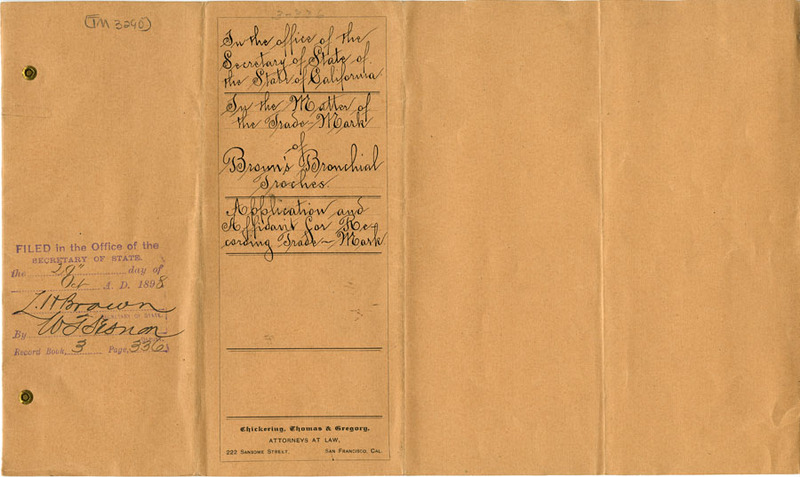 TM 3290
FILED in the Office of the
SECRETARY OF STATE.
the 29" day of
Oct A. D. 1898
L. H. Brown
SECRETARY OF STATE.
By
Record Book, 3 Page, 336
In the office of the
Secretary of State of
the State of California
In the Matter of
the Trade-Mark
of
Brown's Bronchial
Troches.
Application and
Affidavit for Re-
cording Trade-Mark
Chickering, Thomas & Gregory,
ATTORNEYS AT LAW,
222 SANSOME STREET, SAN FRANCISCO, CAL.